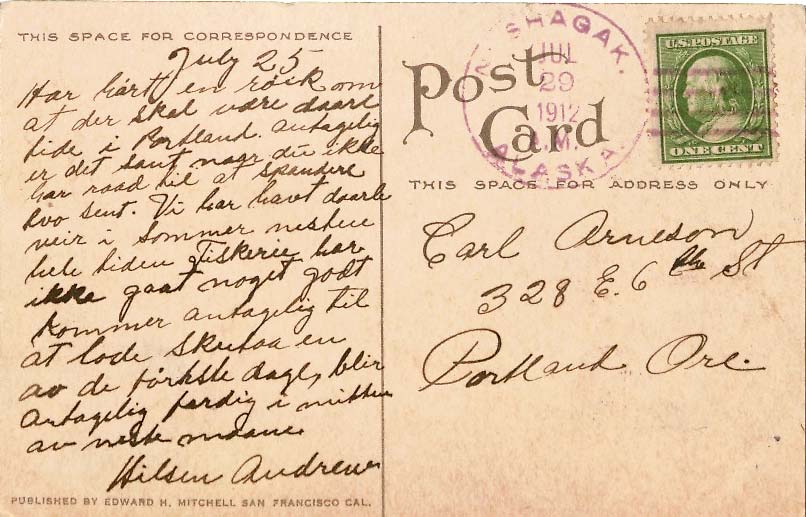 THIS SPACE FOR CORRESPONDENCE
July 25
Har hört en röik om
at der skal være daarl
tide i Portland. antagelig
er det sant naar du ikke
har raad til at spandere
tvo sent. Vi har havt daarle
veir i Sommer nesten
hele tiden Fiskerie har
ikke gaat noget godt
kommer antagelig til
at lode Skutaa en
av de förkste dage, blir
antagelig ferdig i mitten
av neste maane
Hilsen Andrew
PUBLISHED BY EDWARD H. MITCHELL SAN FRANCISCO CAL.
Post Card
SHAGAK.
JUL
29
1912
M.
ALASKA.
U.S. POSTAGE
ONE CENT
THIS SPACE FOR ADDRESS ONLY
Carl Arneson
328 E. 6 th St
Portland Ore.